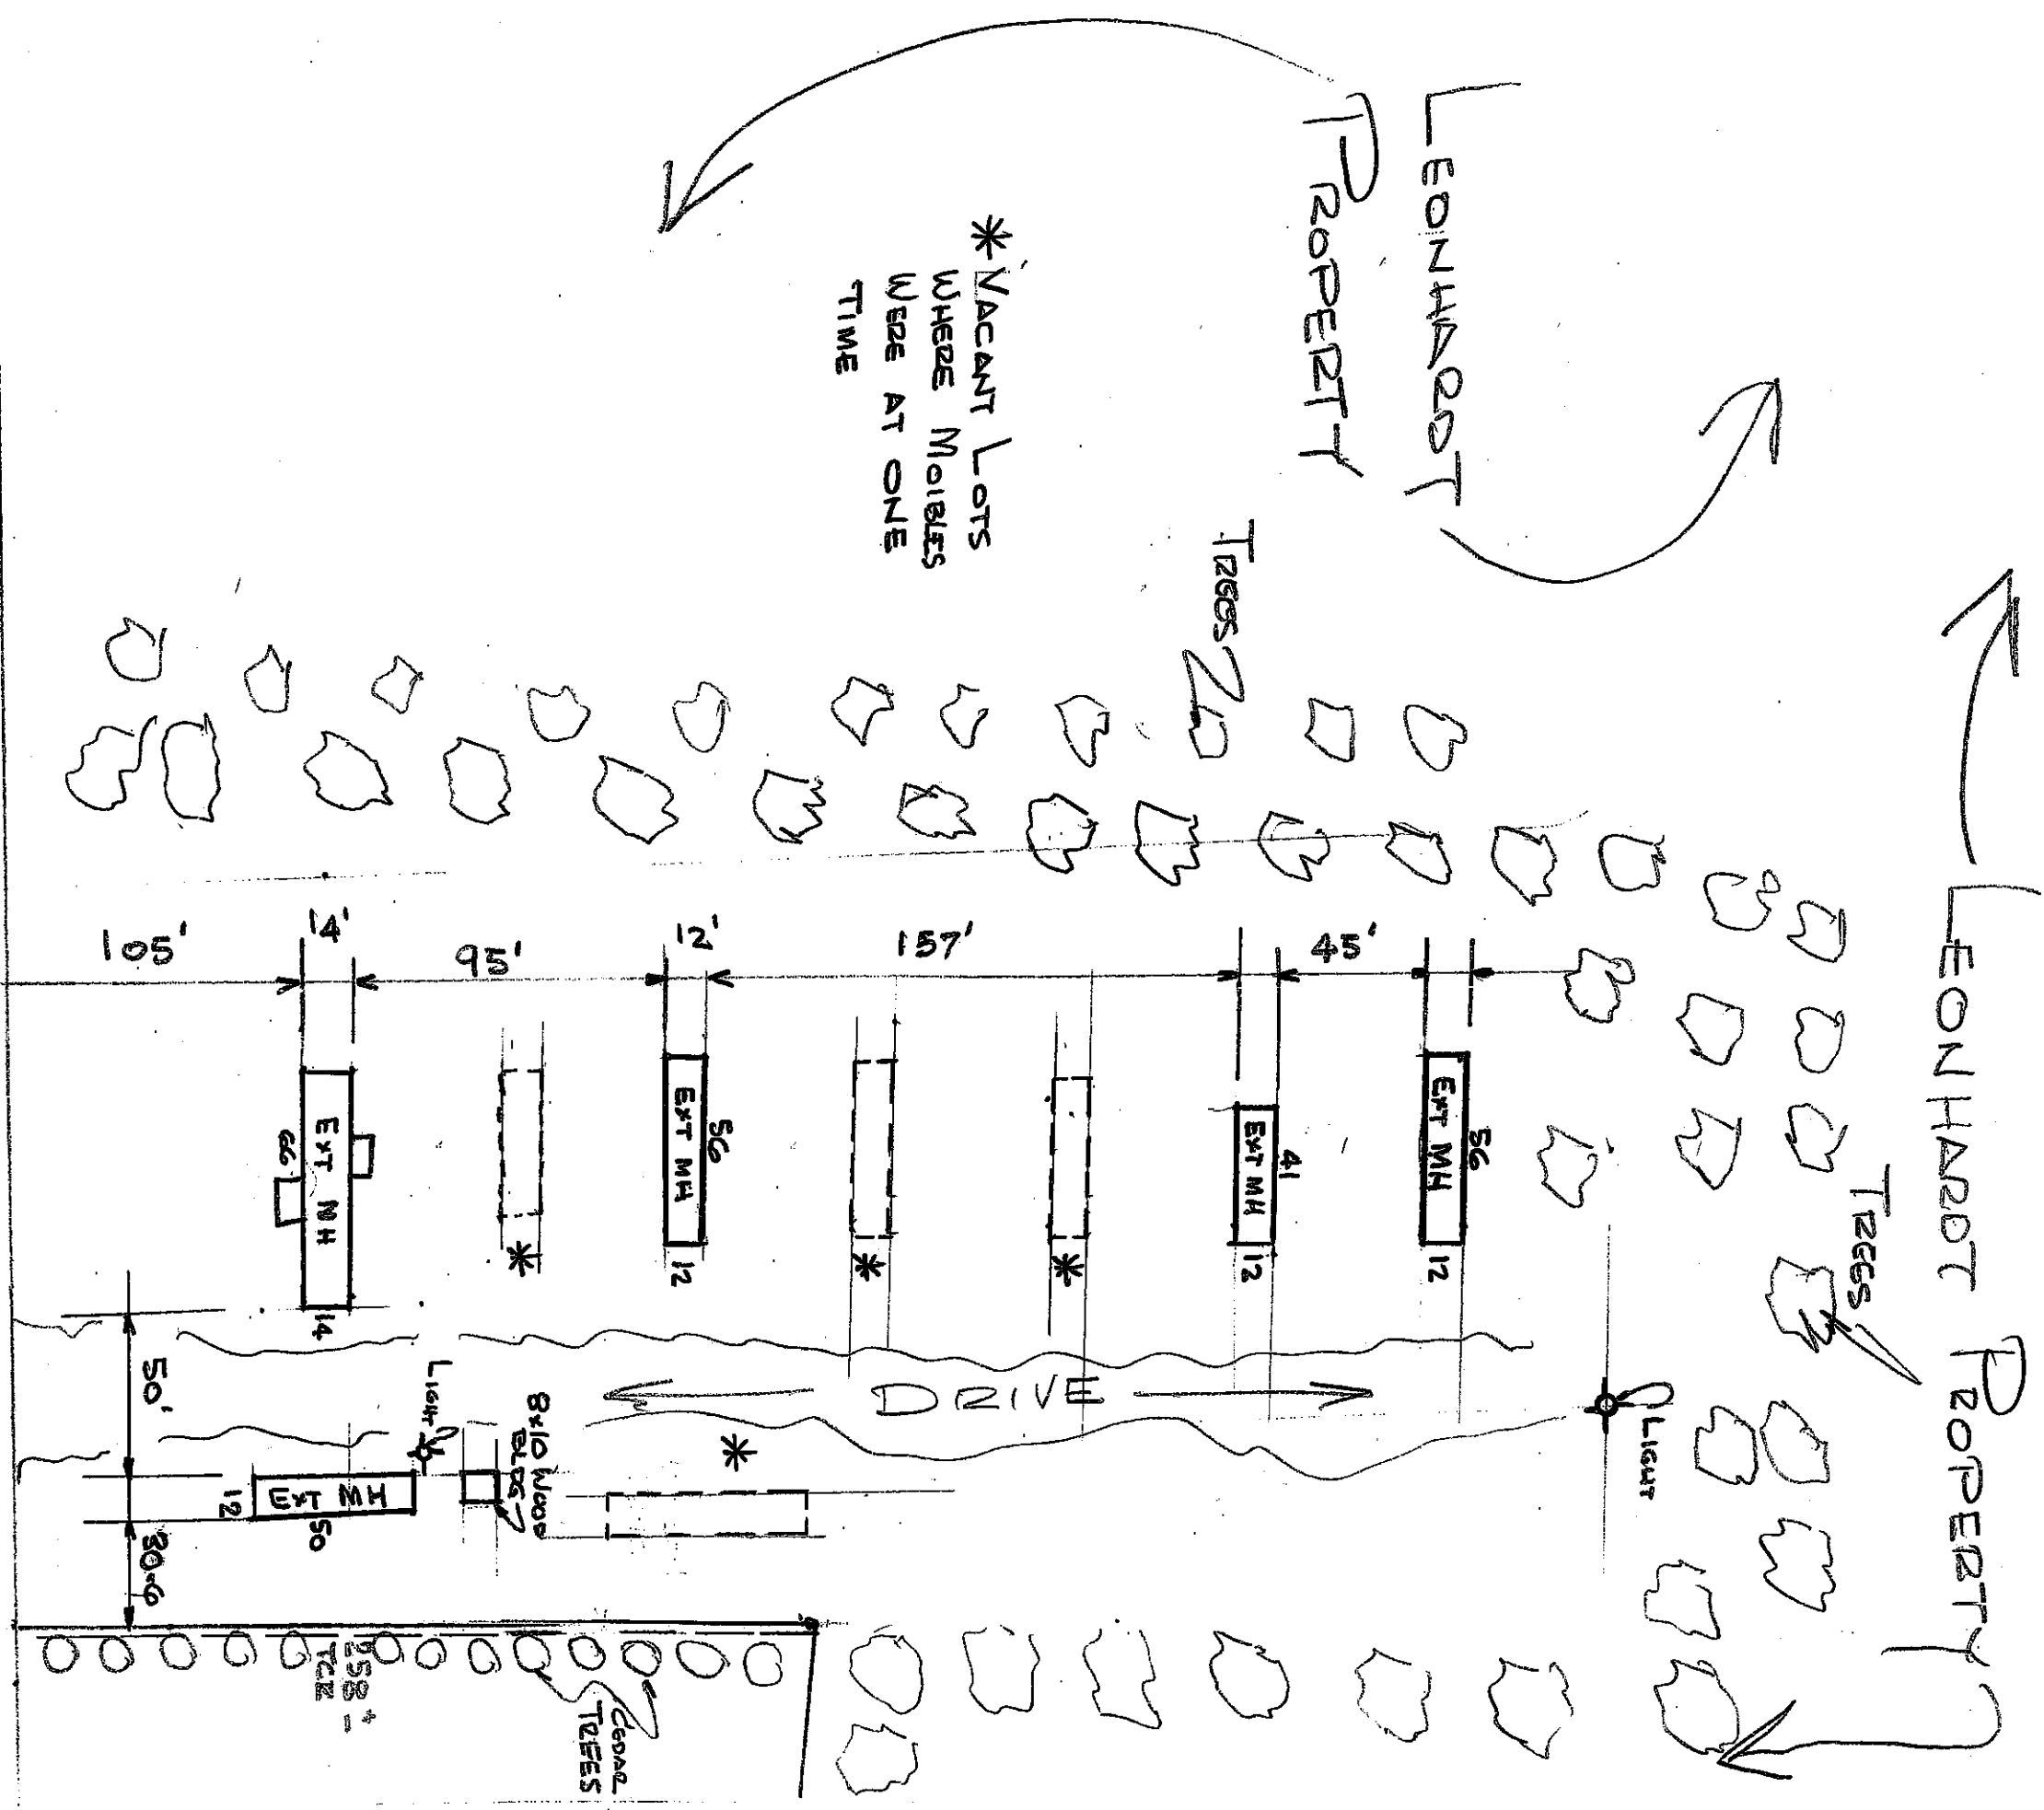 LEONHARDT
PROPERTY
* VACANT LOTS
WHERE MOIBLES
WERE AT ONE
TIME
TREES
LEONHARDT PROPERTY
TREES
105'
14'
95'
12'
157'
45'
EXT MH
66
14
EXT MH
56
12
EXT MH
41
12
EXT MH
56
12
*
*
*
DRIVE
LIGHT
LIGHT
50'
12
30-6
EXT MH
50
8x10 WOOD
BLDG
*
CEDAR
TREES
258'